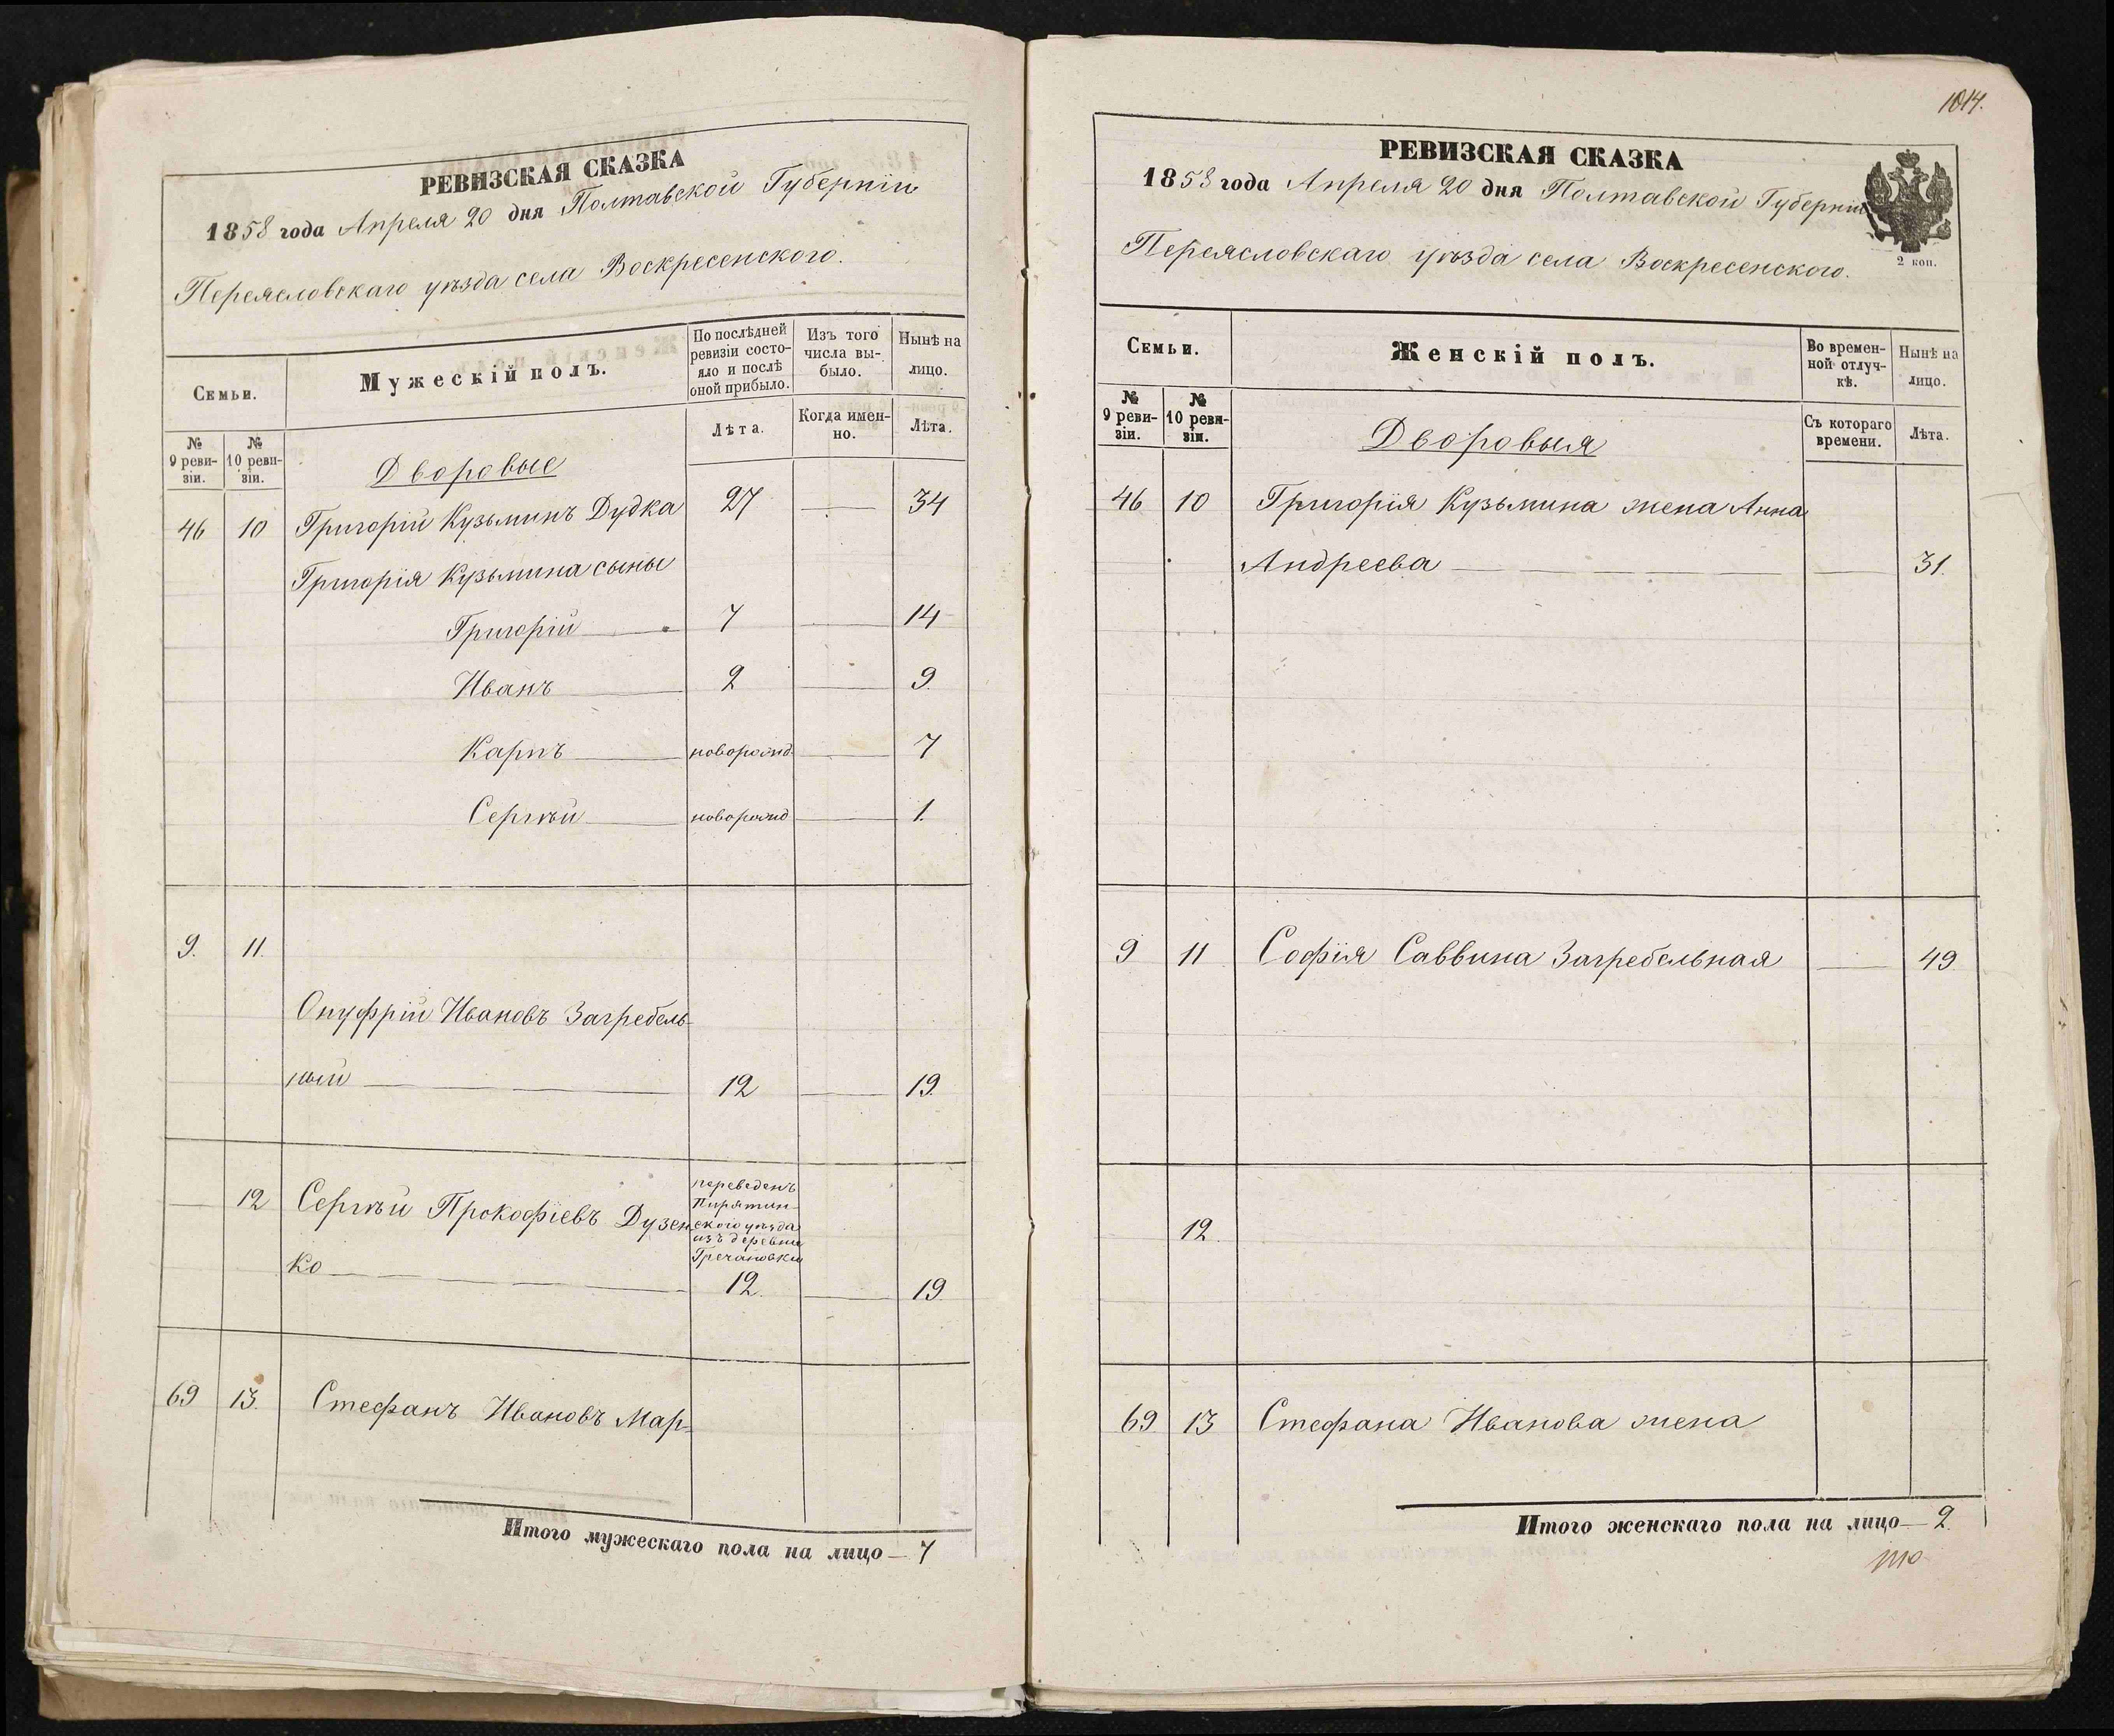 РЕВИЗСКАЯ СКАЗКА
1858 года Апреля 20 дня Полтавской Губерніи
Переясловскаго уѣзда села Воскресенского.
Семьи.
Мужескій полъ.
По послѣдней ревизіи состояло и послѣ оной прибыло.
Изъ того числа выбыло.
Нынѣ на лицо.
№ 9 ревизіи.
№ 10 ревизіи.
Лѣта.
Когда именно.
Лѣта.
Дворовые
46 10 Григорій Кузьминъ Дудка 27 — 34
Григорія Кузьмина сыны
Григорій — 7 — 14
Иванъ — 2 — 9
Карпъ — новорожд. — 7
Сергѣй — новорожд — 1.
9. 11.
Онуфрій Ивановъ Загребель-
ный — 12 — 19.
переведенъ
Пирятин-
— 12 Сергѣй Прокофіевъ Дузен ского уѣзда
изъ деревни
Гречановки
ко — 12. — 19.
69 13. Стефанъ Ивановъ Мар-
Итого мужескаго пола на лицо — 7
1014.
РЕВИЗСКАЯ СКАЗКА
1858 года Апреля 20 дня Полтавской Губерніи
Переясловскаго уѣзда села Воскресенского.
2 коп.
Семьи.
Женскій полъ.
Во временной отлучкѣ.
Нынѣ на лицо.
№ 9 ревизіи.
№ 10 ревизіи.
Съ котораго времени.
Лѣта.
Дворовыя
46 10 Григорія Кузьмина жена Анна
Андреева — — 31.
9 11 Софія Саввина Загребельная — 49
12.
69 13 Стефана Иванова жена
Итого женскаго пола на лицо — 2.